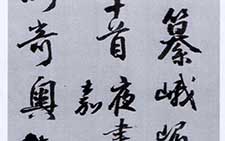 纂峨
十首夜書
嘉
奇奧